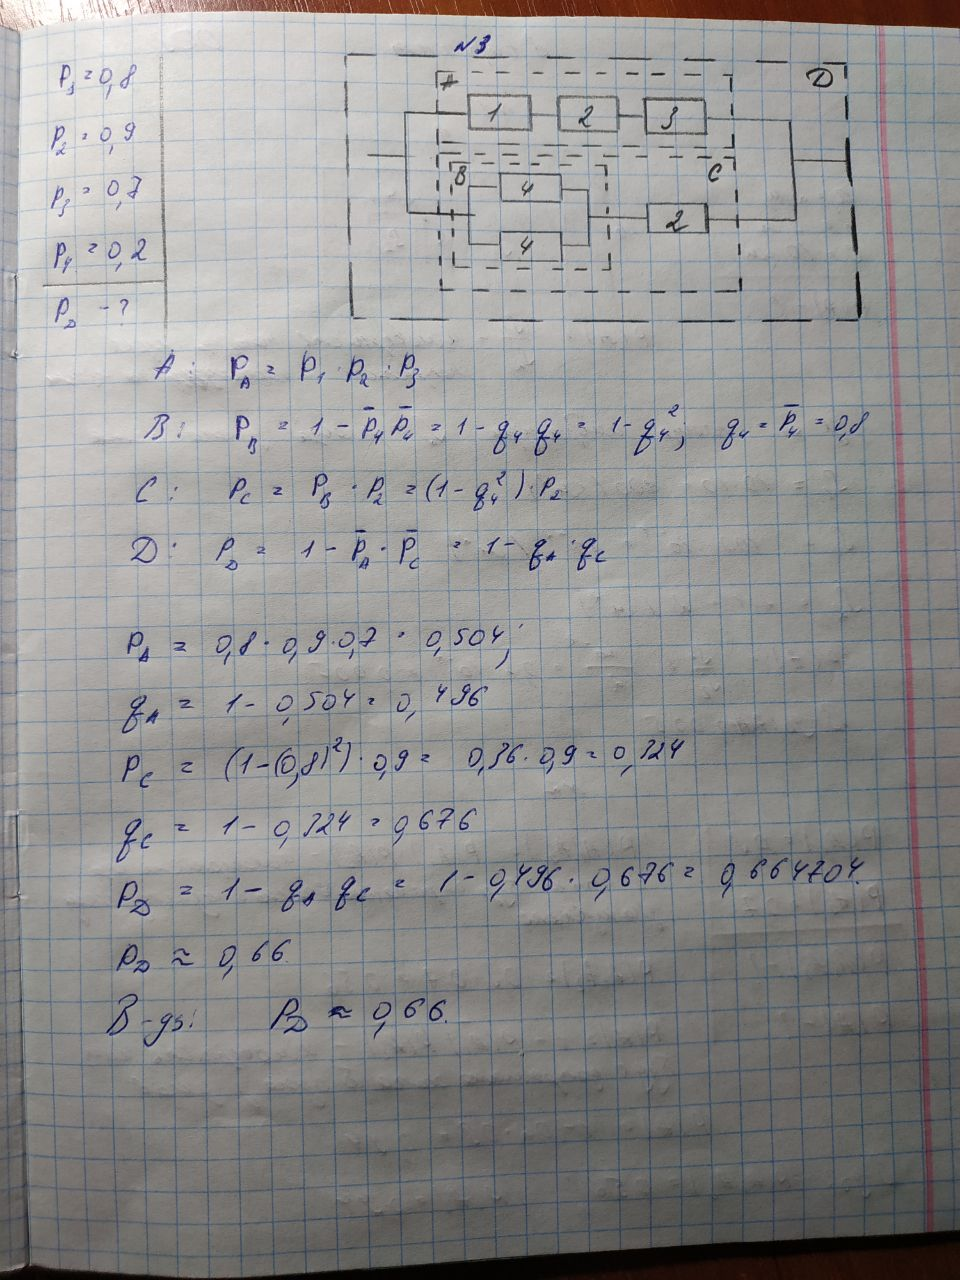 N3
P₁ = 0,8
P₂ = 0,9
P₃ = 0,7
P₄ = 0,2
P_D - ?
A D
1 2 3
B C
4
2
4
A: P_A = P₁ · P₂ · P₃
B: P_B = 1 - p̄₄ p̄₄ = 1 - q₄ q₄ = 1 - q₄², q₄ = p̄₄ = 0,8
C: P_C = P_B · P₂ = (1 - q₄²) · P₂
D: P_D = 1 - p̄_A · p̄_C = 1 - q_A · q_C
P_A = 0,8 · 0,9 · 0,7 = 0,504;
q_A = 1 - 0,504 = 0,496
P_C = (1 - (0,8)²) · 0,9 = 0,36 · 0,9 = 0,324
q_C = 1 - 0,324 = 0,676
P_D = 1 - q_A q_C = 1 - 0,496 · 0,676 = 0,664704.
P_D ≈ 0,66.
В-дь: P_D ≈ 0,66.